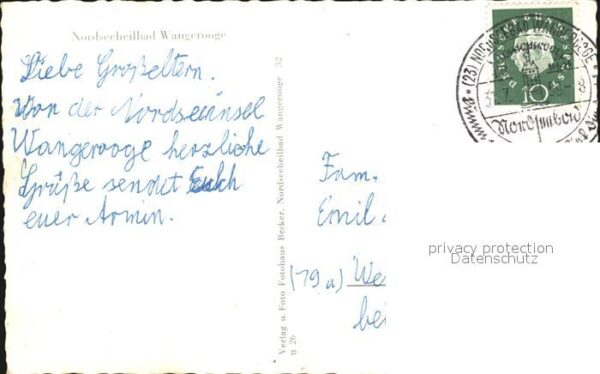 Nordseeheilbad Wangerooge
Liebe Großeltern.
Von der Nordseeinsel
Wangerooge herzliche
Grüße sendet Euch
euer Armin.
Verlag u. Foto Fotohaus Becker, Nordseeheilbad Wangerooge 32
n 26
DEUTSCHE BUNDESPOST
10
(23) NORDSEEBAD WANGEROOGE
Nordseebad
Fam.
Emil
(79a) We
bei
privacy protection
Datenschutz